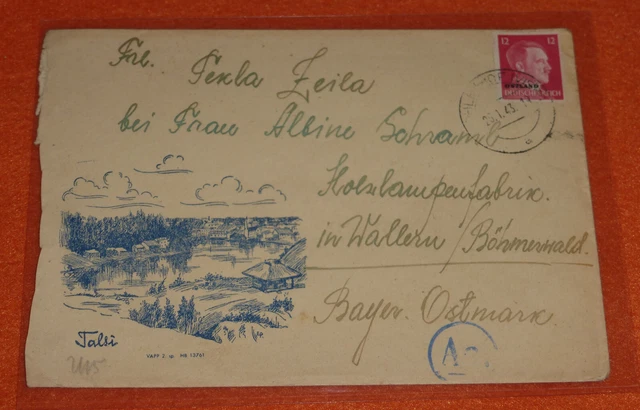 Frl. Tekla Zeila
bei Frau Albine Schraml
Holzlampenfabrik.
in Wallern / Böhmerwald.
Bayer. Ostmark
12 12
OSTLAND
DEUTSCHES REICH
29.1.43
Talsi
VAPP
2115